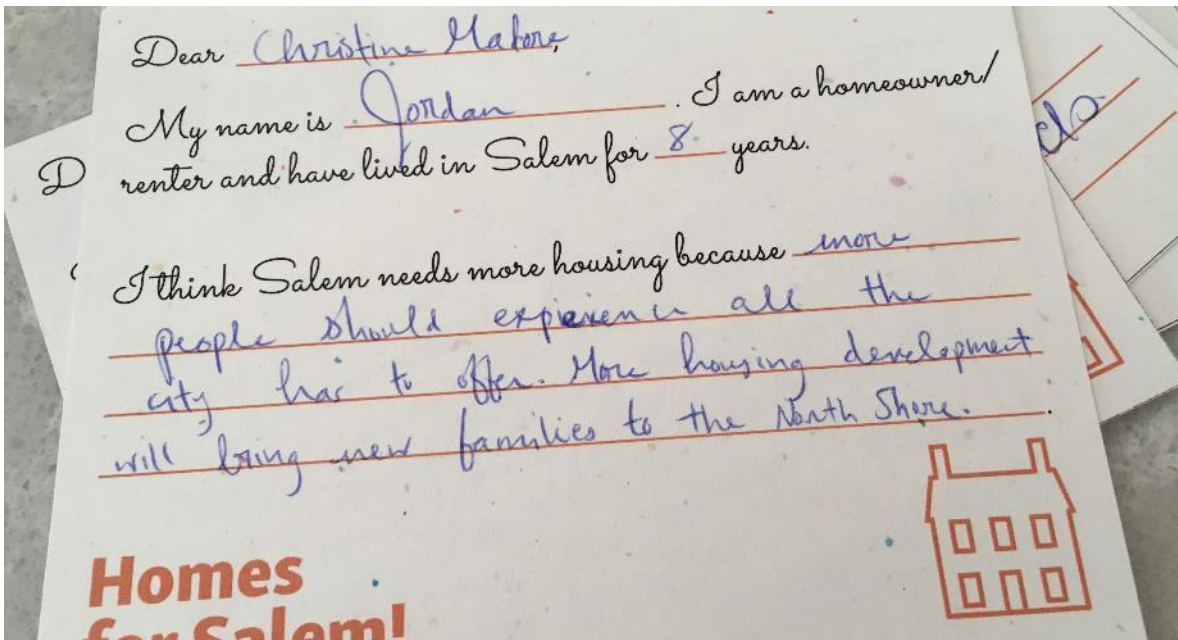 Dear Christine Madore,
My name is Jordan. I am a homeowner/
renter and have lived in Salem for 8 years.
I think Salem needs more housing because more
people should expierence all the
city has to offer. More housing development
will bring new families to the North Shore.
Homes
for Salem!
D